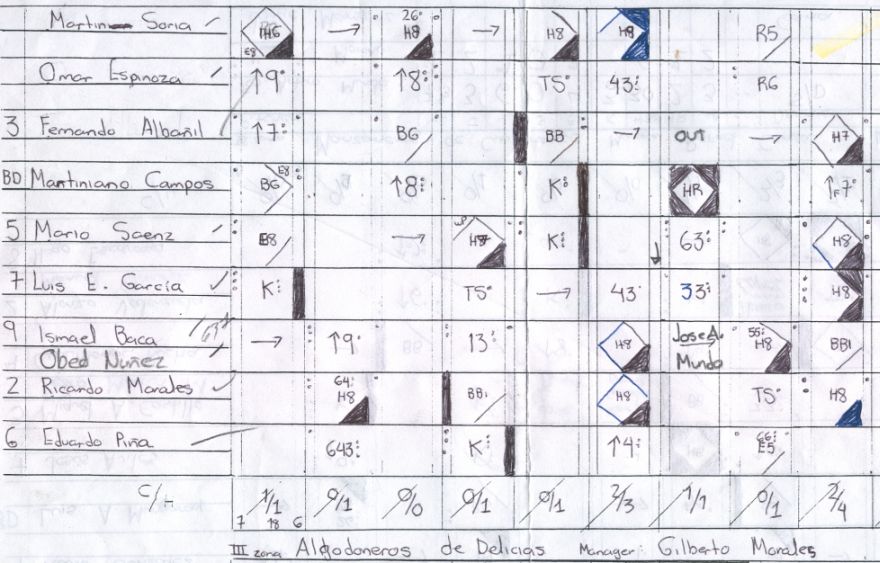 Martin Soria H6 E8 → 26 H8 → H8 H8 R5
Omar Espinoza ↑9 ↑8 TS 43 R6
3 Fernando Albañil ↑7 BG BB → OUT → H7
BD Martiniano Campos BG E8 ↑8 K HR ↑F7
5 Mario Saenz E8 → K 63 H8
7 Luis E. García K TS → 43 33 H8
9 Ismael Baca → ↑9 13 H8 Jose A. 55 H8 BB1
Obed Nuñez Mundo
2 Ricardo Morales 64 H8 BB1 H8 TS H8
6 Eduardo Piña 643 K ↑4 66 E5
C/H 1/1 0/1 0/0 0/1 0/1 2/3 1/1 0/1 2/4
7 18 6
III zona Algodoneros de Delicias Manager: Gilberto Morales